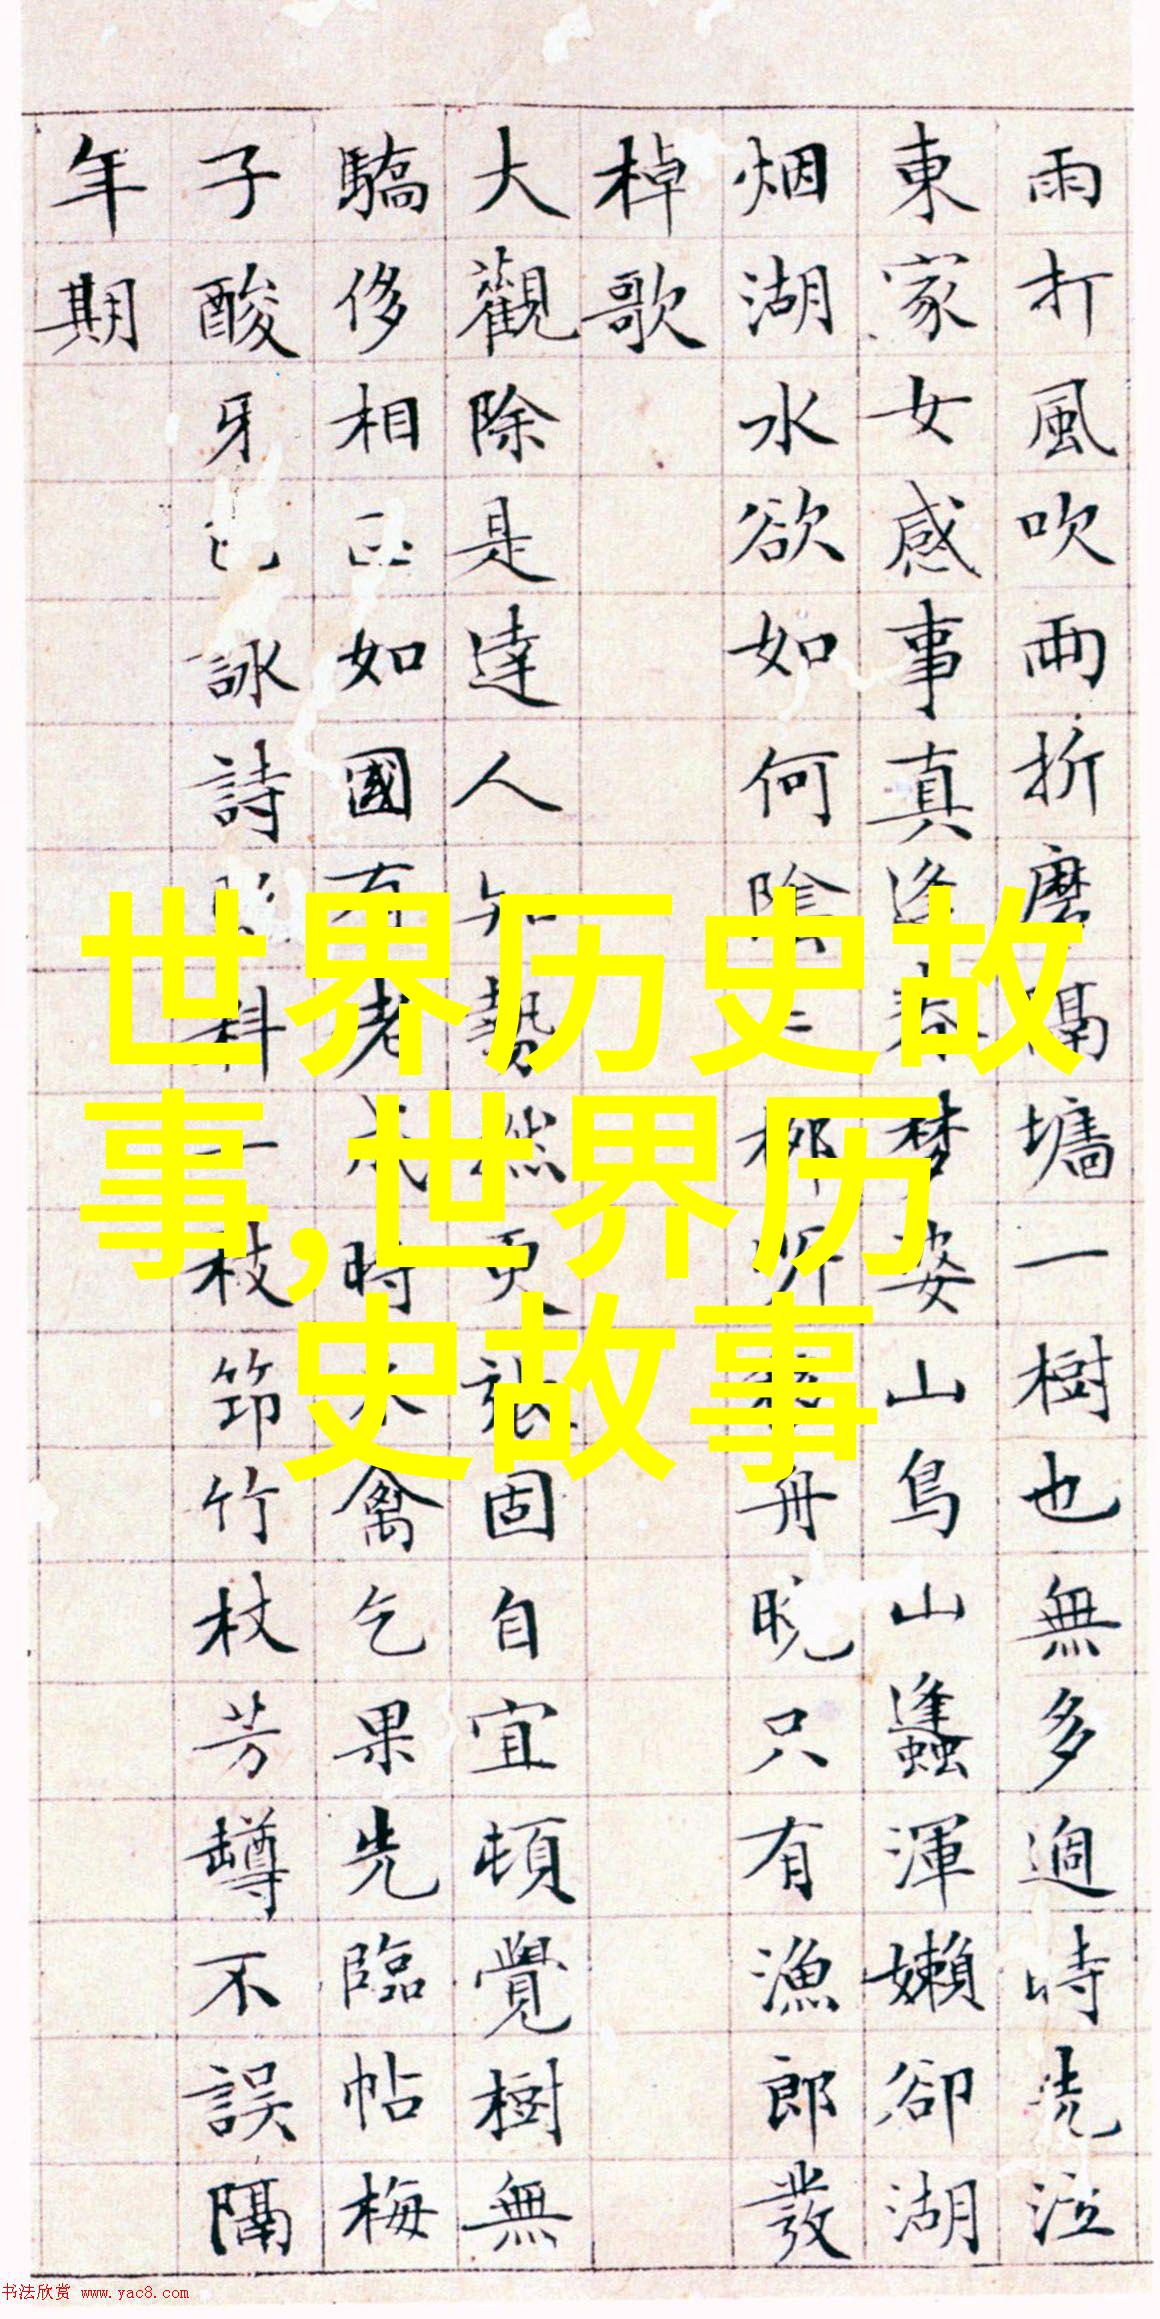 雨打風吹雨折磨隔墻一樹也無多過時洗泣
東家女感事真逢春夢婆山鳥山蠭渾嬾卻湖
烟湖水欲如何陰柳所舟晚只有漁郎發
棹歌
大觀除是達人知勢然更張固自宜頓覺樹無
驕侈相如國有老成時禽乞果先臨帖梅
子酸牙詠詩料一枝筇竹杖芳罇不誤隔
年期
世界历史故
事,世界历
史故事
书法欣赏 www.yac8.com